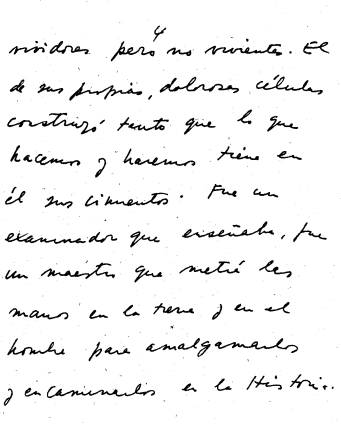 4
vividores pero no vivientes. El
de sus propias, dolorosas células
construyó tanto que lo que
hacemos y haremos tiene en
él sus cimientos. Fue un
examinador que enseñaba, fue
un maestro que metió las
manos en la tierra y en el
hombre para amalgamarlos
y encaminarlos en la Historia.